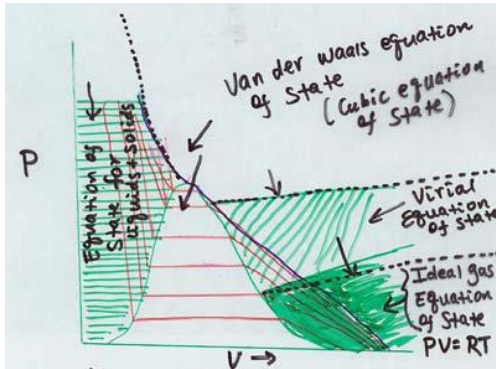 Van der Waals equation
of State
(Cubic equation
of State)
P
Equation of
State for
liquids+solids
Virial
Equation
of State
Ideal gas
Equation
of State
PV = RT
V →